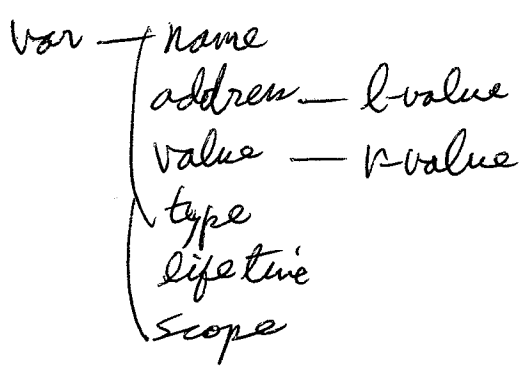 var — name
address — l-value
value — r-value
type
lifetime
scope